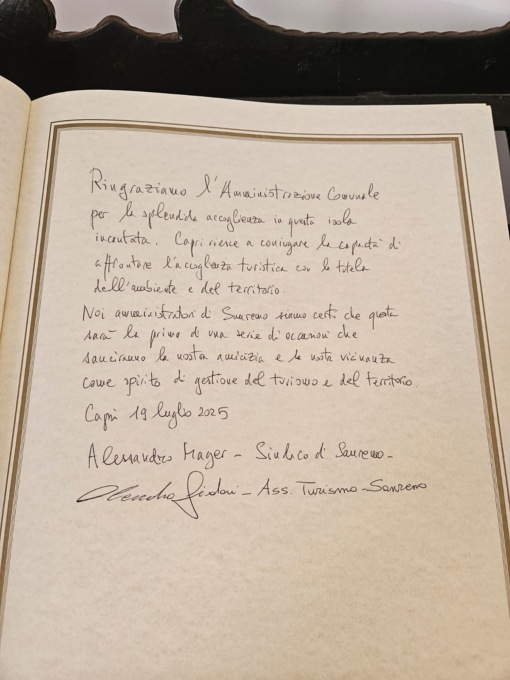 Ringraziamo l'Amministrazione Comunale
per la splendida accoglienza in questa isola
incantata. Capri riesce a coniugare la capacità di
affrontare l'accoglienza turistica con la tutela
dell'ambiente e del territorio.
Noi amministratori di Sanremo siamo certi che questa
sarà la prima di una serie di occasioni che
sanciranno la nostra amicizia e la nostra vicinanza
come spirito di gestione del turismo e del territorio.
Capri 19 luglio 2025
Alessandro Mager - Sindaco di Sanremo -
Alessandro Sindoni - Ass. Turismo - Sanremo